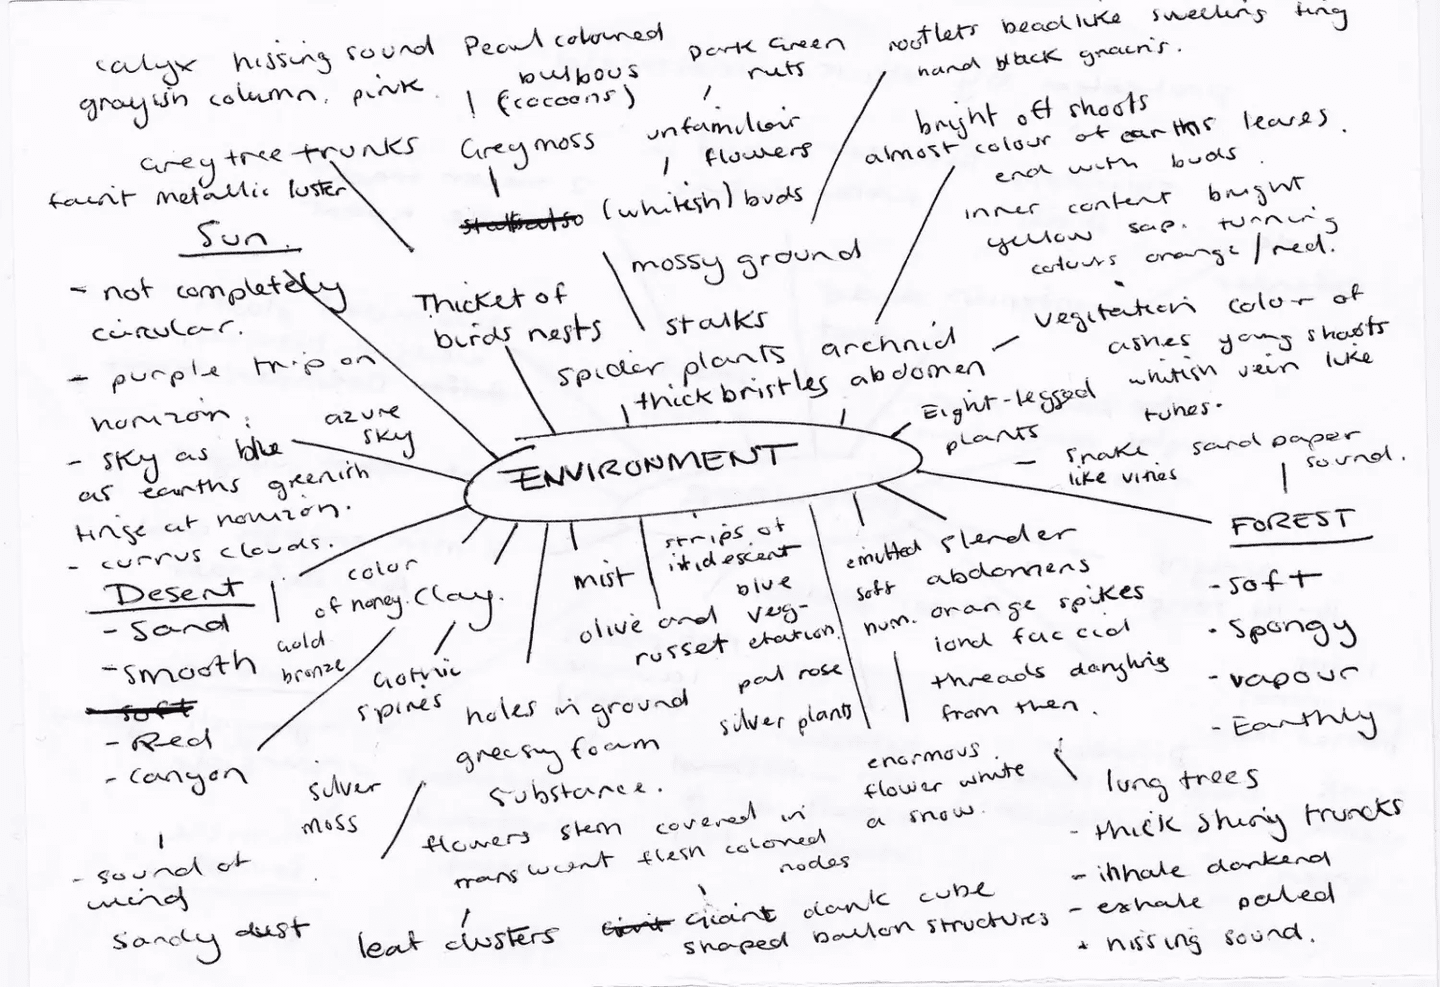 calyx hissing sound
grayish column. pink.
Pearl coloured
bulbous
(cocoons)
Dark Green
nuts
rootlets beadlike swelling tiny
hand black grains.
Grey tree trunks
faint metallic luster
Grey moss
unfamiliar
flowers
(whitish) buds
bright off shoots
almost colour of earths leaves.
end with buds.
inner content bright
yellow sap. turning
colours orange/red.
Sun.
- not completely
circular.
- purple trip on
horizon.
- sky as blue
as earths greenish
tinge at horizon.
- currus clouds.
azure
sky
Thicket of
birds nests
mossy ground
stalks
spider plants
thick bristles
archnid
abdomen
vegitation color of
ashes young shoots
whitish vein like
tubes.
Eight-legged
plants
- Snake
like vities
sand paper
sound.
ENVIRONMENT
FOREST
- Soft
- Spongy
- vapour
- Earthly
Desert
- Sand
- smooth
soft
- Red
- canyon
- sound of
wind
sandy dust
color
of honey.
Gold
bronze
Clay.
Gothic
spires
silver
moss
mist
holes in ground
greasy foam
substance.
olive and
russet
strips of
iridescent
blue
veg-
etation.
pal rose
silver plants
emitted
soft
hum.
slender
abdomens
orange spikes
and faccid
threads dangling
from then.
enormous
flower white
a snow.
flowers stem covered in
translucent flesh colored
nodes
leaf clusters
Giant dank cube
shaped ballon structures
lung trees
- thick shiny truncks
- inhale darkend
- exhale paled
* hissing sound.